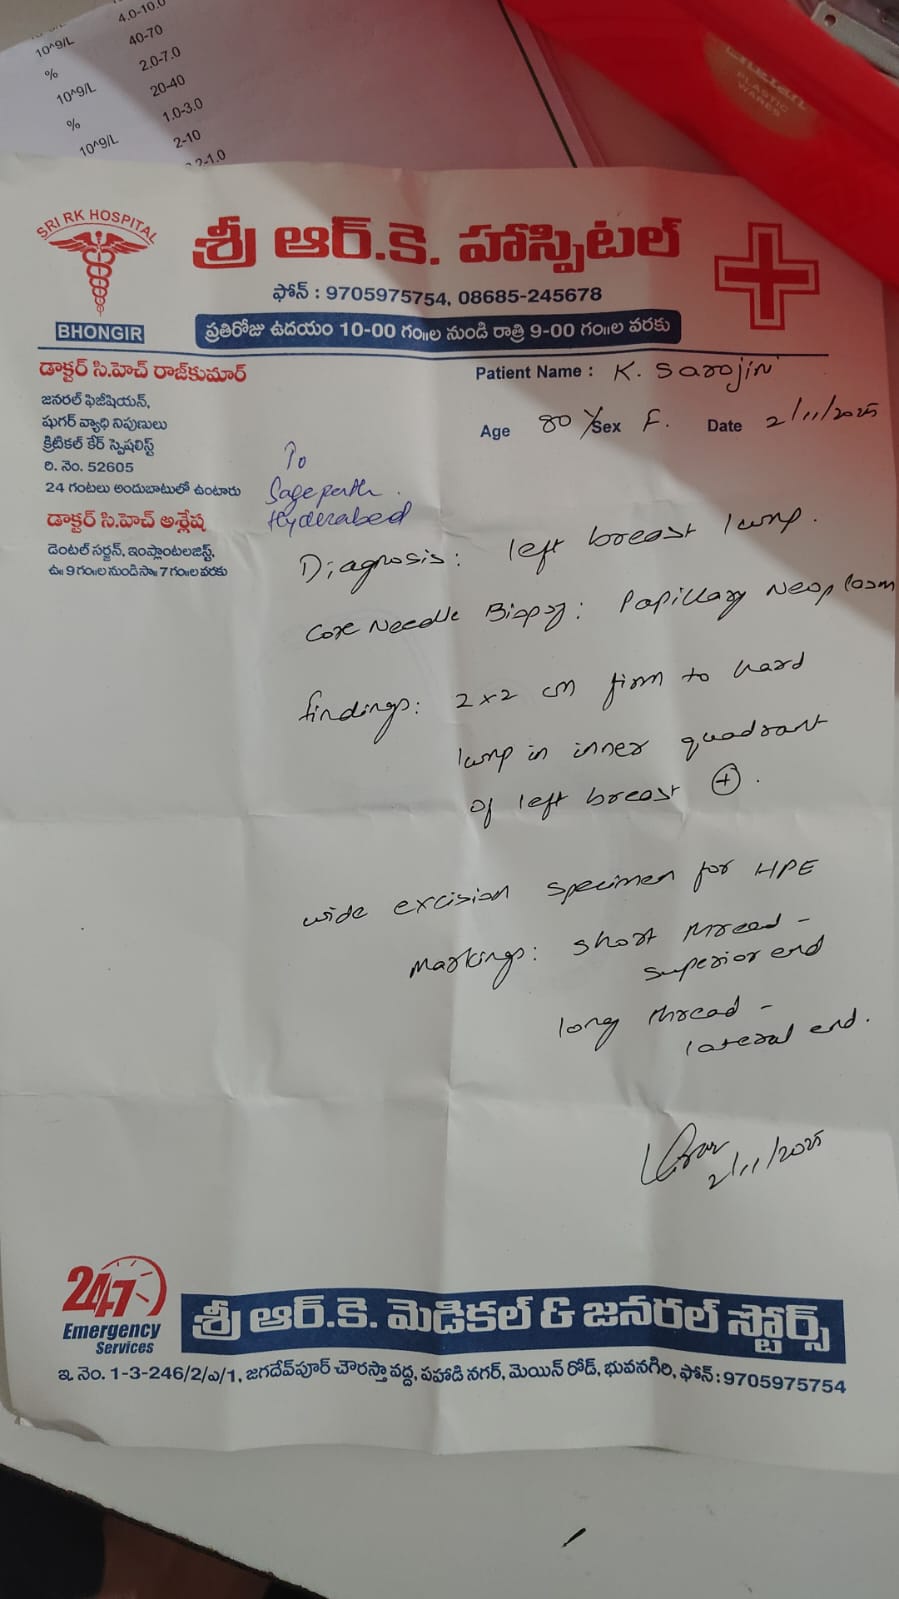 10^9/L 4.0-10.0
% 40-70
10^9/L 2.0-7.0
% 20-40
10^9/L 1.0-3.0
2-10
2-1.0
PLASTIC
WARES
SRI RK HOSPITAL
BHONGIR
శ్రీ ఆర్.కె. హాస్పిటల్
ఫోన్ : 9705975754, 08685-245678
ప్రతిరోజు ఉదయం 10-00 గం॥ల నుండి రాత్రి 9-00 గం॥ల వరకు
డాక్టర్ సి.హెచ్ రాజ్‌కుమార్
జనరల్ ఫిజీషియన్,
షుగర్ వ్యాధి నిపుణులు
క్రిటికల్ కేర్ స్పెషలిస్ట్
రి. నెం. 52605
24 గంటలు అందుబాటులో ఉంటారు
డాక్టర్ సి.హెచ్ అశ్లేష
డెంటల్ సర్జన్, ఇంప్లాంటలజిస్ట్,
ఉ॥ 9 గం॥ల నుండి సా॥ 7 గం॥ల వరకు
Patient Name : K. Sarojini
Age 80 Y Sex F. Date 2/11/2025
To
Sagepath.
Hyderabad
Diagnosis: left breast lump.
Core Needle Biopsy: Papillary Neoplasm
findings: 2x2 cm firm to hard
lump in inner quadrant
of left breast ⊕.
wide excision specimen for HPE
Markings: short thread -
superior end
long thread -
lateral end.
2/11/2025
24/7
Emergency
Services
శ్రీ ఆర్.కె. మెడికల్ & జనరల్ స్టోర్స్
ఇ. నెం. 1-3-246/2/ఎ/1, జగదేవ్‌పూర్ చౌరస్తా వద్ద, పహాడి నగర్, మెయిన్ రోడ్, భువనగిరి, ఫోన్ : 9705975754